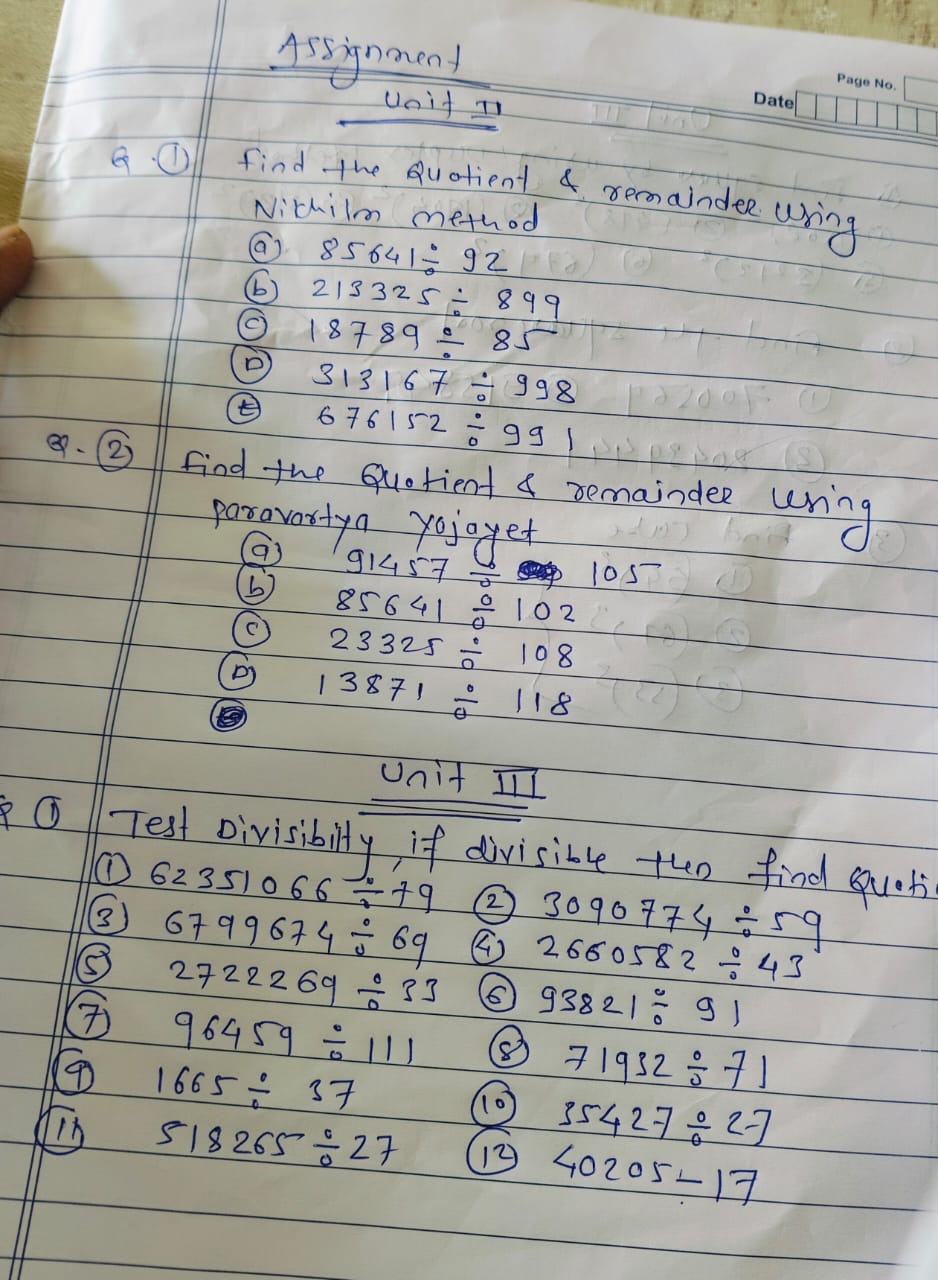 Assignment
Page No.
Date
Unit II
Q. ① Find the Quotient & remainder using
Nikhilm method
ⓐ 85641 ÷ 92
ⓑ 213325 ÷ 899
ⓒ 18789 ÷ 85
Ⓓ 313167 ÷ 998
Ⓔ 676152 ÷ 991
Q. ② Find the Quotient & remainder using
paravartya Yojayet
ⓐ 91457 ÷ 105
ⓑ 85641 ÷ 102
ⓒ 23325 ÷ 108
Ⓓ 13871 ÷ 118
Unit III
Q ① Test Divisibilty, if divisible then find Quoti
① 62351066 ÷ 79 ② 3090774 ÷ 59
③ 6799674 ÷ 69 ④ 2660582 ÷ 43
⑤ 2722269 ÷ 33 ⑥ 93821 ÷ 91
⑦ 96459 ÷ 111 ⑧ 71932 ÷ 71
⑨ 1665 ÷ 37 ⑩ 35427 ÷ 27
⑪ 518265 ÷ 27 ⑫ 40205 ÷ 17